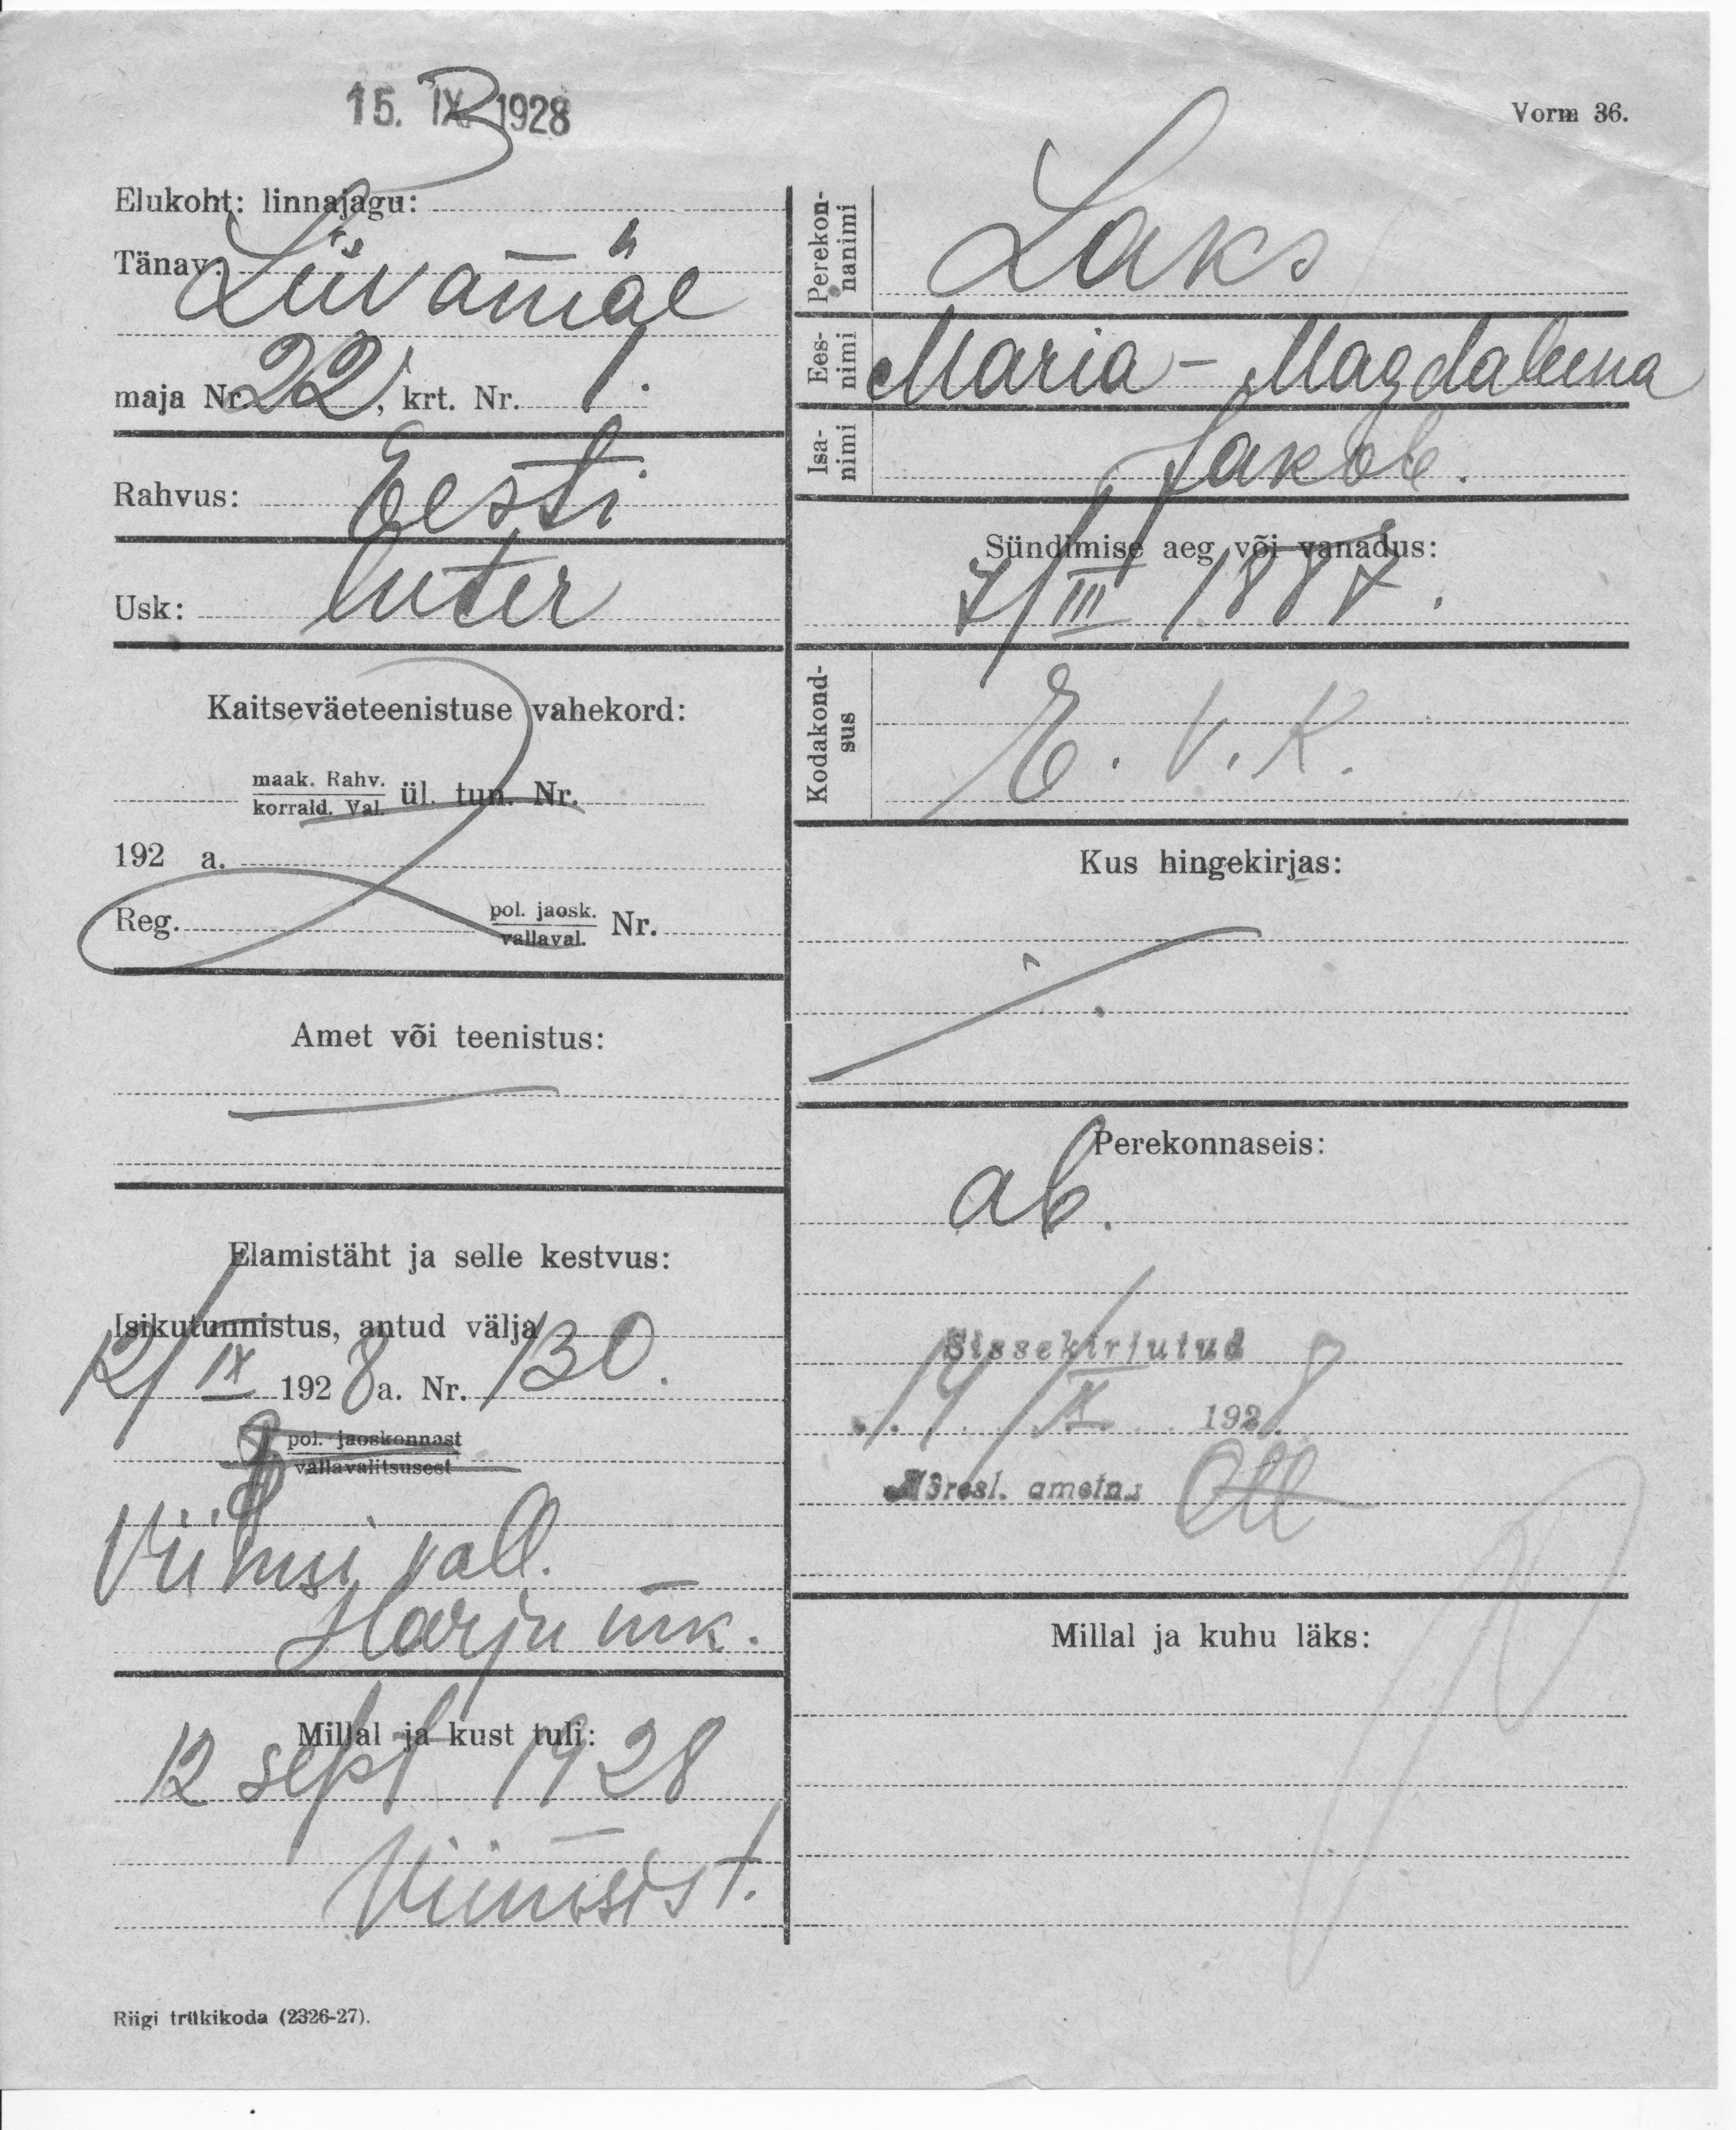 15. IX 1928
Vorm 36.
Elukoht: linnajagu:
Tänav: Liivamäe
maja Nr. 22, krt. Nr. 1.
Rahvus: Eesti
Usk: luter
Kaitseväeteenistuse vahekord:
maak. Rahv.
korrald. Val. ül. tun. Nr.
192 a.
Reg. pol. jaosk.
vallaval. Nr.
Amet või teenistus:
Elamistäht ja selle kestvus:
Isikutunnistus, antud välja
12/IX 1928 a. Nr. 130.
pol. jaoskonnast
vallavalitsusest
Viimsi vall.
Harju mk.
Millal ja kust tuli:
12 sept 1928
Viimsist.
Riigi trükikoda (2326-27).
Perekon-
nanimi
Laks
Ees-
nimi
Maria-Magdaleena
Isa-
nimi
Jakob.
Sündimise aeg või vanadus:
7/III 1887.
Kodakond-
sus
E. V. K.
Kus hingekirjas:
Perekonnaseis:
ab.
Sissekirjutud
14/X 1928
Adresl. ametn.
Millal ja kuhu läks: